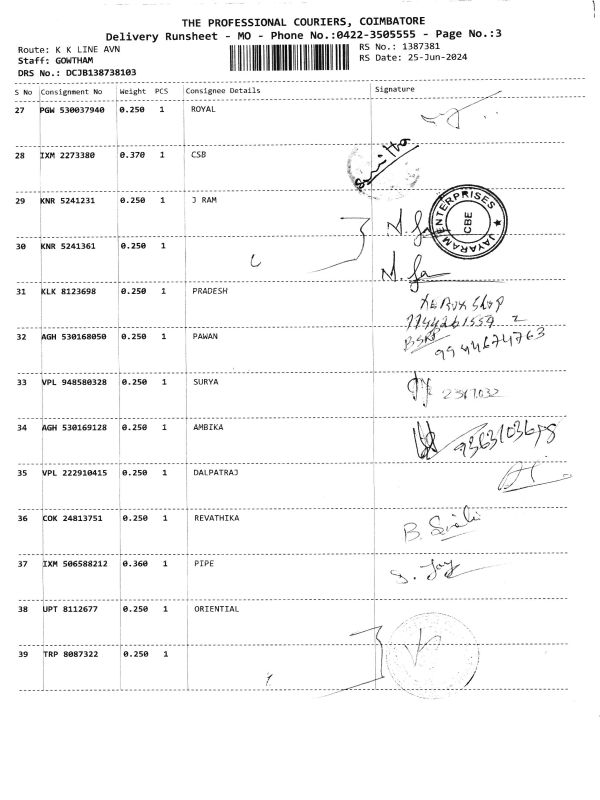 THE PROFESSIONAL COURIERS, COIMBATORE
Delivery Runsheet - MO - Phone No.:0422-3505555 - Page No.:3
Route: K K LINE AVN RS No.: 1387381
Staff: GOWTHAM RS Date: 25-Jun-2024
DRS No.: DCJB138738103
S No Consignment No Weight PCS Consignee Details Signature
27 PGW 530037940 0.250 1 ROYAL
28 IXM 2273380 0.370 1 CSB
29 KNR 5241231 0.250 1 J RAM
JAYARAM ENTERPRISES ★
CBE
30 KNR 5241361 0.250 1
31 KLK 8123698 0.250 1 PRADESH
XEROX Shop
32 AGH 530168050 0.250 1 PAWAN
9944674763
33 VPL 948580328 0.250 1 SURYA
34 AGH 530169128 0.250 1 AMBIKA
35 VPL 222910415 0.250 1 DALPATRAJ
36 COK 24813751 0.250 1 REVATHIKA
37 IXM 506588212 0.360 1 PIPE
38 UPT 8112677 0.250 1 ORIENTIAL
39 TRP 8087322 0.250 1